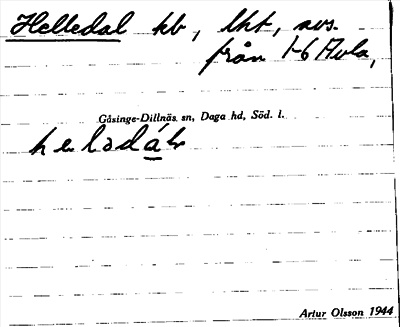 Helledal kb, lht, avs.
från 1-6 Avla,
Gåsinge-Dillnäs sn, Daga hd, Söd. l.
Artur Olsson 1944